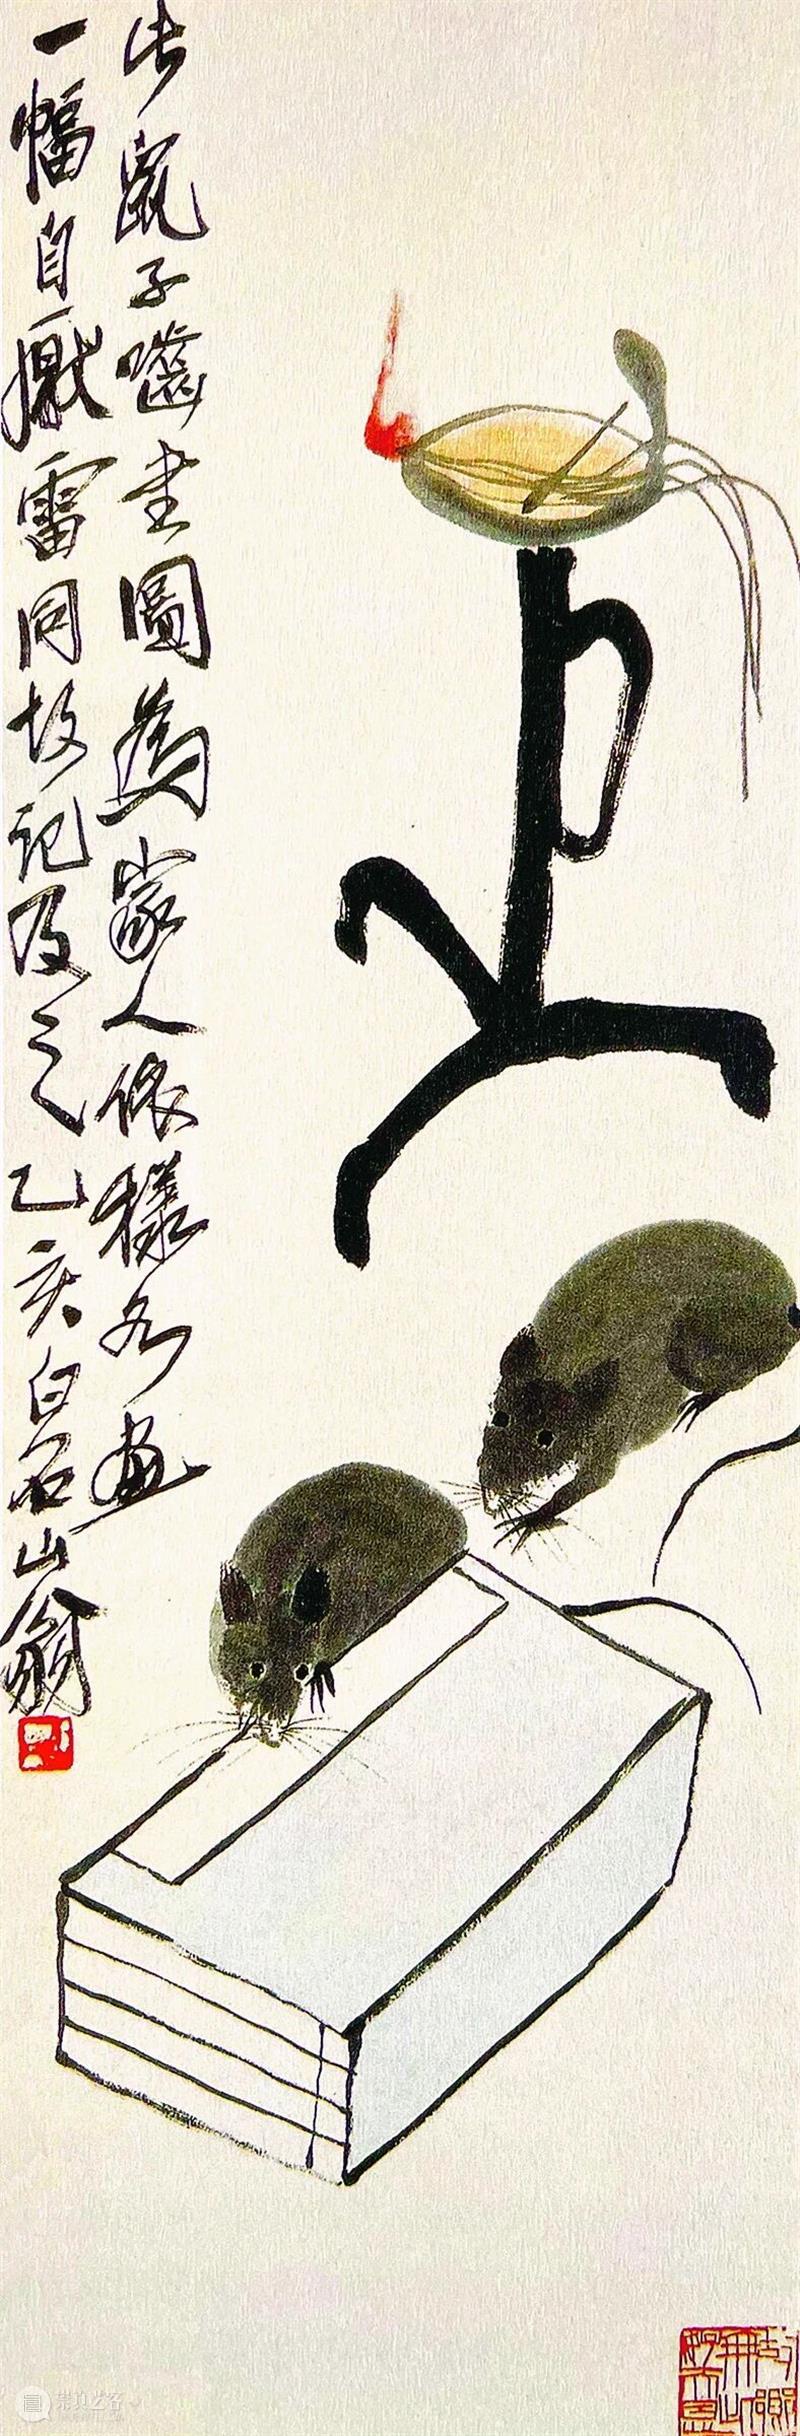 此鼠子嚙書圖為家人依樣各畫
一幅自厭雷同故記及之乙亥白石山翁